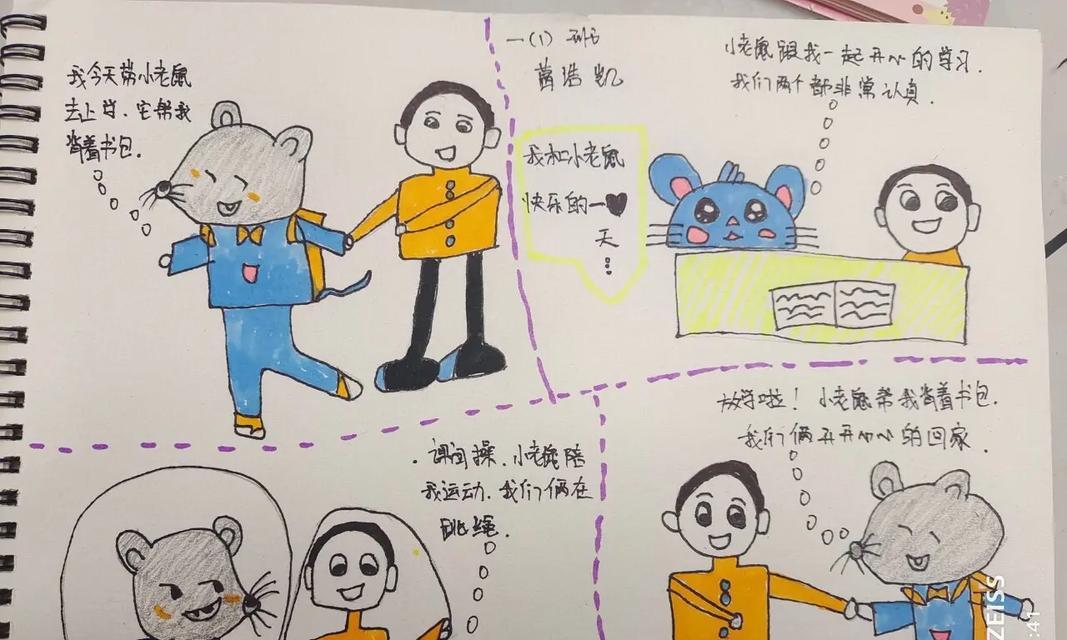 我今天带小老鼠
去上学，它帮我
背着书包.
一(1)班
浩凯
我和小老鼠
快乐的一
天
小老鼠跟我一起开心的学习.
我们两个都非常认真.
.课间操.小老鼠陪
我运动.我们俩在
跳绳.
放学啦！小老鼠帮我背着书包.
我们俩开开心心的回家.
ZEISS
:41